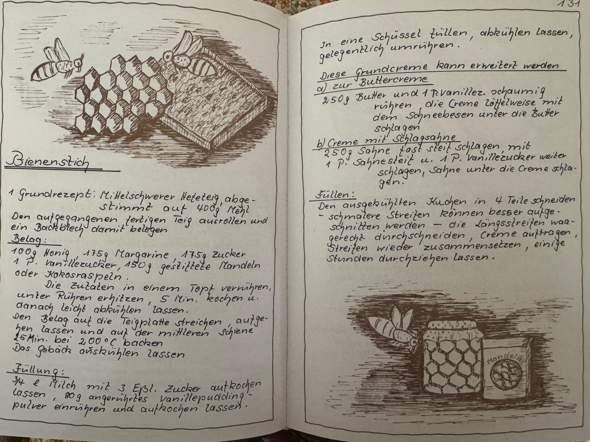 Bienenstich
1 Grundrezept: Mittelschwerer Hefeteig, abge-
stimmt auf 400g Mehl
Den aufgegangenen fertigen Teig ausrollen und
ein Backblech damit belegen
Belag:
100g Honig, 175g Margarine, 175g Zucker
1 P. Vanillezucker, 150g gestiftete Mandeln
oder Kokosraspeln.
Die Zutaten in einem Topf verrühren,
unter Rühren erhitzen, 5 Min. kochen u.
danach leicht abkühlen lassen.
Den Belag auf die Teigplatte streichen, aufge-
hen lassen und auf der mittleren Schiene
25Min. bei 200°C backen
Das Gebäck auskühlen lassen
Füllung:
3/4 l Milch mit 3 Eßl. Zucker aufkochen
lassen, 80g angerührtes Vanillepudding-
pulver einrühren und aufkochen lassen.
131
In eine Schüssel füllen, abkühlen lassen,
gelegentlich umrühren.
Diese Grundcreme kann erweitert werden
a) zur Buttercreme
250g Butter und 1 P. Vanillez. schaumig
rühren, die Creme löffelweise mit
dem Schneebesen unter die Butter
schlagen
b) Creme mit Schlagsahne
250g Sahne fast steif schlagen, mit
1 P. Sahnesteif u. 1 P. Vanillezucker weiter
schlagen, Sahne unter die Creme schla-
gen.
Füllen:
Den ausgekühlten Kuchen in 4 Teile schneiden
- schmalere Streifen können besser aufge-
schnitten werden - die Längsstreifen waa-
gerecht durchschneiden, Creme auftragen,
Streifen wieder zusammensetzen, einige
Stunden durchziehen lassen.
Mandeln